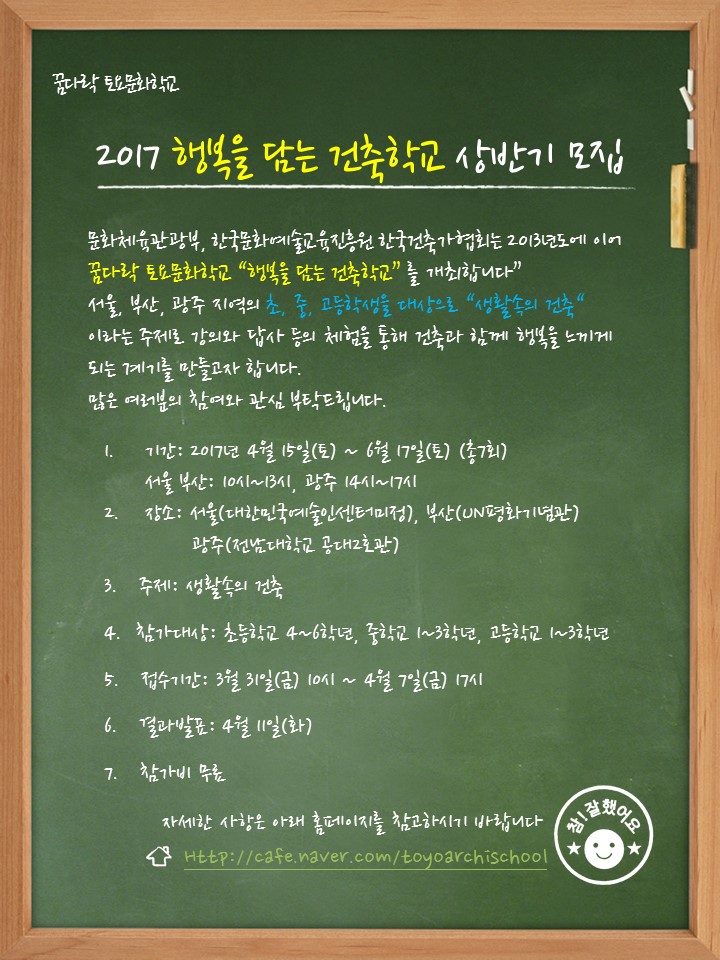 꿈다락 토요문화학교
2017 행복을 담는 건축학교 상반기 모집
문화체육관광부, 한국문화예술교육진흥원 한국건축가협회는 2013년도에 이어
꿈다락 토요문화학교 “행복을 담는 건축학교” 를 개최합니다”
서울, 부산, 광주 지역의 초, 중, 고등학생을 대상으로 “생활속의 건축“
이라는 주제로 강의와 답사 등의 체험을 통해 건축과 함께 행복을 느끼게
되는 계기를 만들고자 합니다.
많은 여러분의 참여와 관심 부탁드립니다.
1. 기간: 2017년 4월 15일(토) ~ 6월 17일(토) (총7회)
서울 부산: 10시~13시, 광주 14시~17시
2. 장소: 서울(대한민국예술인센터미정), 부산(UN평화기념관)
광주(전남대학교 공대2호관)
3. 주제: 생활속의 건축
4. 참가대상: 초등학교 4~6학년, 중학교 1~3학년, 고등학교 1~3학년
5. 접수기간: 3월 31일(금) 10시 ~ 4월 7일(금) 17시
6. 결과발표: 4월 11일(화)
7. 참가비 무료
자세한 사항은 아래 홈페이지를 참고하시기 바랍니다
Http://cafe.naver.com/toyoarchischool
참! 잘했어요